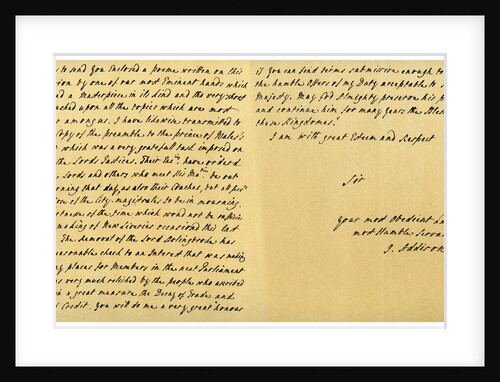 to send you Enclosed a poeme written on this
sion by one of our most Eminent hands which
ed a Masterpiece in its kind and tho very short
uched upon all the topics which are most
r among us. I have likewise transmitted to
Copy of the preamble to the prince of Wales's
which was a very gratefull task imposed on
the Lords Justices. Their Ex:cies have orderd
Lords and others who meet His Ma:ty be out
rning that day, as also their Coaches, but all
ion of the City-magistrates to be in mourning.
ortnesse of the time which would not be suffici
making of New Liveries occasiond this last
The Removal of the Lord Bolingbroke has
easonable check to an Interest that was making
ny places for Members in the next Parliament
s very much relished by the people who ascribed
in a great measure the Decay of Trade and
Credit. you will do me a very great honour
if you can find terms submissive enough to
the humble Offers of my Duty acceptable to
Majesty. May God Almighty preserve his p
and continue him for many years the Bles
these Kingdomes.
I am with great Esteem and Respect
Sir
your most Obedient an
most Humble Serva
J. Addison